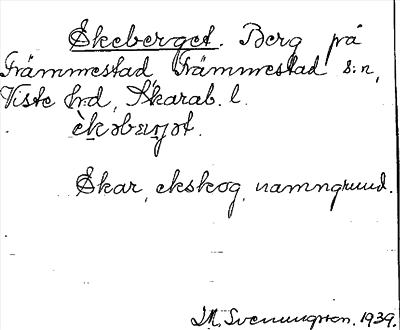 Ekeberget. Berg på
Främmestad, Främmestad s:n,
Viste hd, Skarab. l.
Ekar, ekskog, namngrund.
1939.